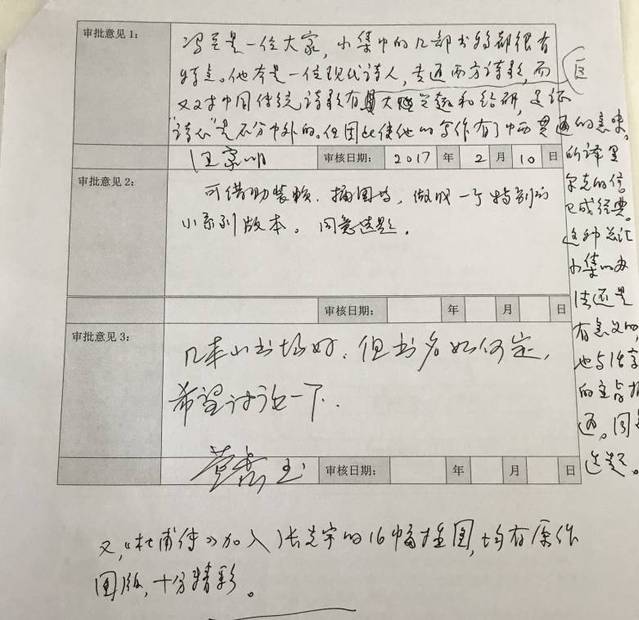 审批意见1:
冯至是一位大家,小集中的几部书稿都很有
特点。他本是一位现代诗人,专通西方诗歌,而
又对中国传统诗歌有大兴趣和钻研,是证
“诗心”是不分中外的。但因此使他的写作有了中西贯通的意味。
汪家明
审核日期: 2017 年 2 月 10 日
的译里
尔克的信
已成经典。
这种总汇
小集的办
法还是
有意义的,
也与
的主旨相
通。同意
选题。
审批意见2:
可借助装帧、插图等,做成一个特别的
小系列版本。同意选题。
审核日期: 年 月 日
审批意见3:
几本小书均好,但书名如何定,
希望讨论一下。
董秀玉
审核日期: 年 月 日
又,《杜甫传》加入 的16幅插图,均有原作
图版,十分精彩。